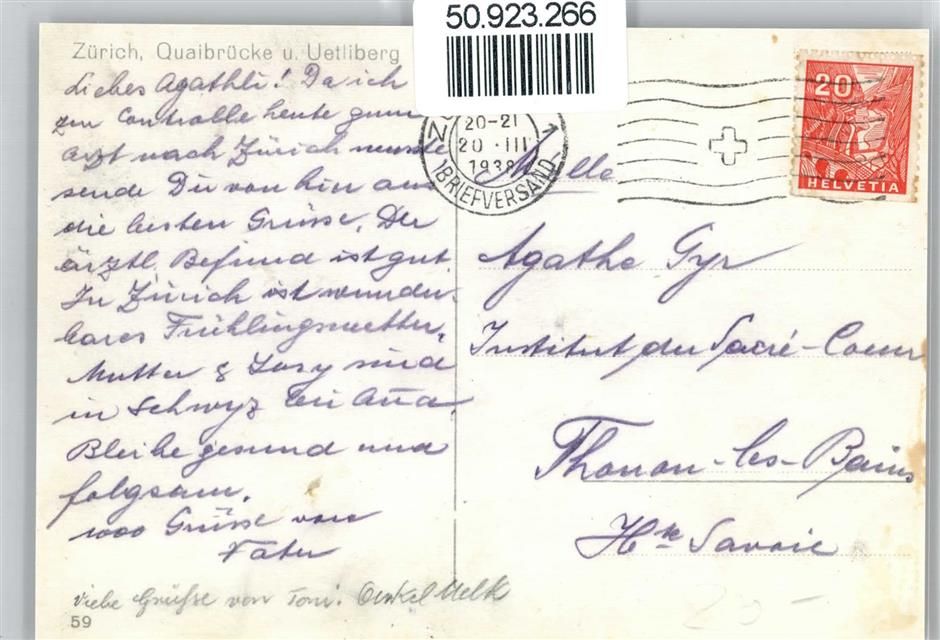 50.923.266
Zürich, Quaibrücke u. Uetliberg
Liebes Agathli! Da ich
zur Controlle heute zum
Arzt nach Zürich musste
sende Dir von hier aus
die besten Grüsse. Der
ärztl. Befund ist gut.
In Zürich ist wunder-
bares Frühlingswetter.
Mutter & Josy sind
in Schwyz bei
Bleibe gesund und
folgsam.
1000 Grüsse von
Vater
viele Grüße von Toni. Onkel Melk
59
20-21
20.III
1938
BRIEFVERSAND
1
20
HELVETIA
Mlle
Agathe Gyr
Institut du Sacré-Coeur
Thonon-les-Bains
Hte Savoie